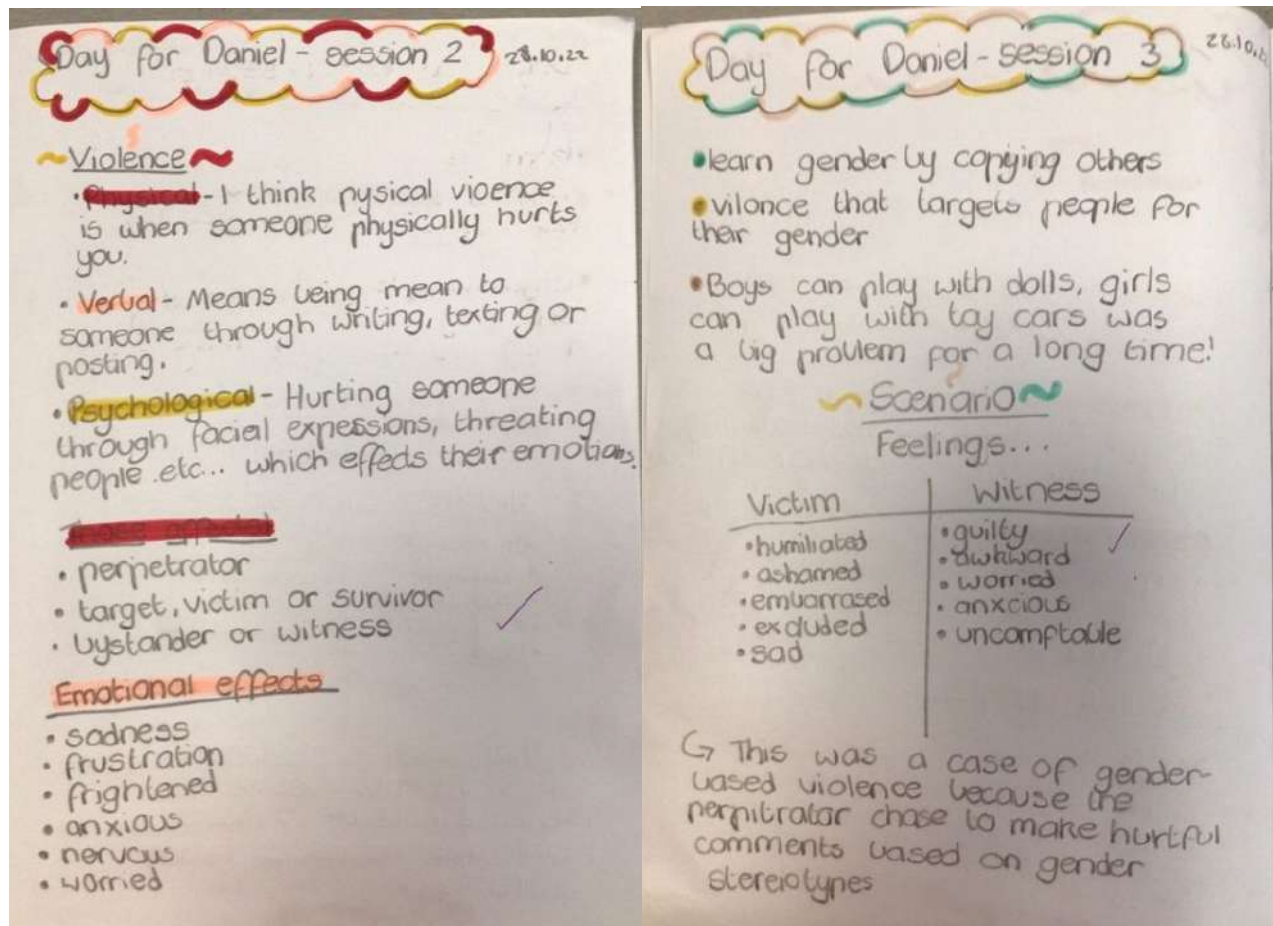 Day for Daniel - session 2 28.10.22
Violence
• Physical - I think pysical vioence
is when someone physically hurts
you.
• Verbal - Means being mean to
someone through writing, texting or
posting.
• Psychological - Hurting someone
through facial expessions, threating
people .etc... which effeds their emotions.
Those affected
• perpetrator
• target, victim or survivor
• bystander or witness
Emotional effects
• sadness
• frustration
• frightened
• anxious
• nervous
• worried
Day for Daniel - session 3
• learn gender by copying others
• vilonce that targets people for
their gender
• Boys can play with dolls, girls
can play with toy cars was
a big problem for a long time!
Scenario
Feelings...
Victim
• humiliated
• ashamed
• embarrased
• excluded
• sad
Witness
• guilty
• awkward
• worried
• anxcious
• uncomptable
↳ This was a case of gender-
based violence because the
perpitrator chose to make hurtful
comments based on gender
stereiotypes